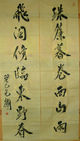 珠簾暮卷西山雨
飛閣俯臨東野春